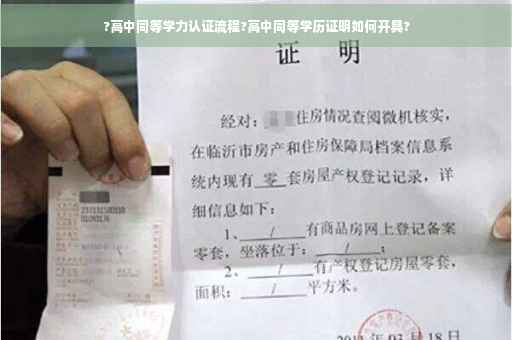 ?高中同等学力认证流程?高中同等学历证明如何开具?
证 明
经对: 住房情况查阅微机核实,
在临沂市房产和住房保障局档案信息系
统内现有 零 套房屋产权登记记录,详
细信息如下:
1、 / 有商品房网上登记备案
零套,坐落位于: / ;
2、 / 有产权登记房屋零套,
面积: / 平方米。
03 月 18 日